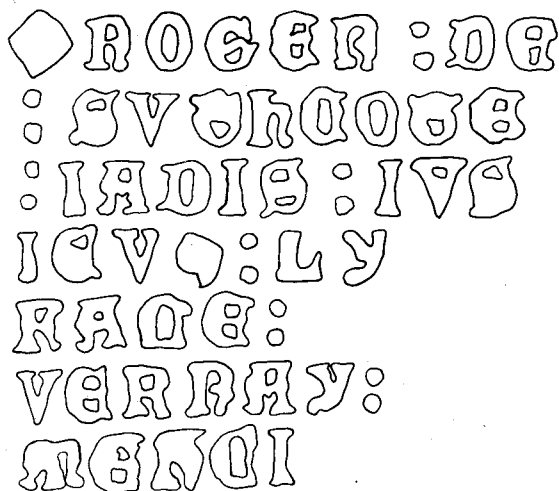 ROGER :DE
:SVTHCOTE
:IADIS :IVS
:LY
RACE:
VERRAY:
MERCI